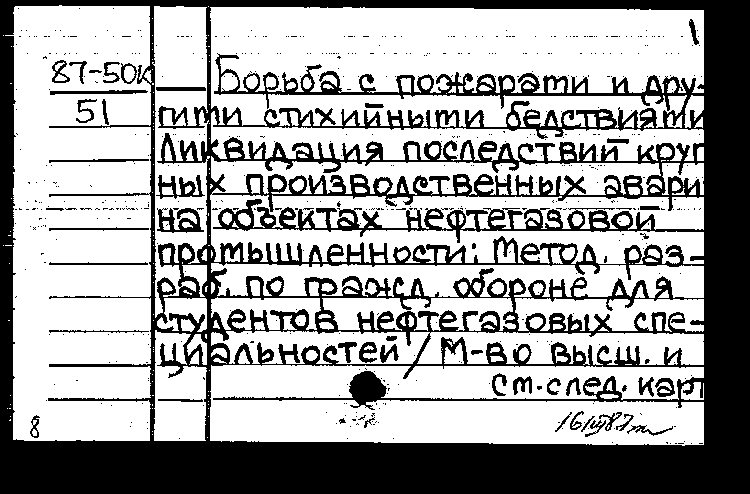 1
87-50к Борьба с пожарами и дру-
51 гими стихийными бедствиями
Ликвидация последствий круп
ных производственных авари
на объектах нефтегазовой
промышленности: Метод. раз-
раб. по гражд. обороне для
студентов нефтегазовых спе-
циальностей / М-во высш. и
см. след. карт
8